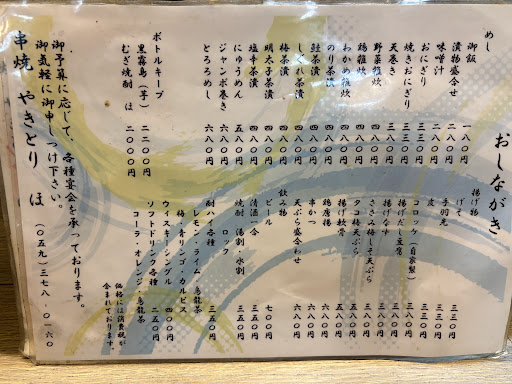 おしながき
めし
御飯
漬物盛合せ
味噌汁
おにぎり 三三〇円
焼きおにぎり
天巻き 三八〇円
野菜雑炊 四八〇円
鶏雑炊 四八〇円
わかめ雑炊 四八〇円
のり茶漬 四八〇円
鮭茶漬 四八〇円
しぐれ茶漬 四八〇円
梅茶漬 四八〇円
明太子茶漬 四八〇円
塩辛茶漬 四八〇円
にゅうめん 五八〇円
ジャンボ巻き 六八〇円
とろろめし 六八〇円
ボトルキープ
黒霧島(芋) 二二〇〇円
むぎ焼酎 ほ 二〇〇〇円
揚げ物
げそ 三三〇円
手羽先 三三〇円
皮 三三〇円
コロッケ(自家製)
揚げだし豆腐
ささみ梅しそ天ぷら 五八〇円
タコ梅天ぷら 五八〇円
揚げ軟骨 五八〇円
鶏唐揚
串かつ 六八〇円
天ぷら盛合わせ 六八〇円
飲み物
ビール 七〇〇円
清酒一合 三五〇円
焼酎 湯割・水割 三五〇円
ロック
酎ハイ各種 三五〇円
レモン・ライム・烏龍茶
梅・青リンゴ・カルピス
ウイスキーシングル 四〇〇円
ソフトドリンク各種 二五〇円
コーラ・オレンジ・烏龍茶
価格には消費税が
含まれております。
御予算に応じて、各種宴会を承っております。
御気軽に御申しつけ下さい。
串焼 やきとり ほ (〇五九)三七八‐〇一六〇